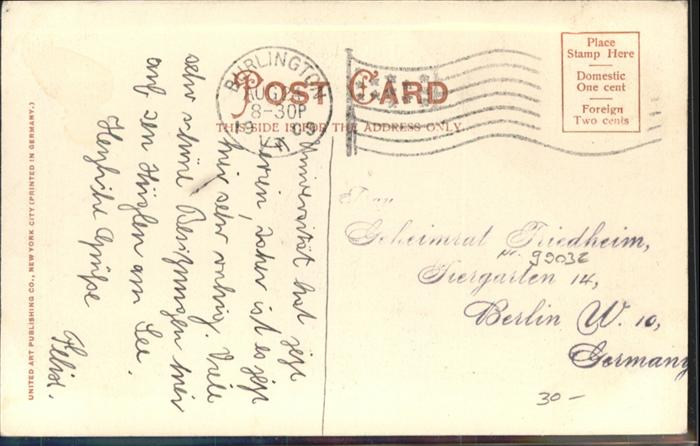 POST CARD
THIS SIDE IS FOR THE ADDRESS ONLY.
Place
Stamp Here
Domestic
One cent
Foreign
Two cents
BURLINGTON
AUG
8-30P
VT.
UNITED ART PUBLISHING CO., NEW YORK CITY (PRINTED IN GERMANY.)
Universität hat jetzt
Ferien, daher ist es jetzt
hier sehr ruhig. Viele
sehr schöne Besitzungen hier
auf den Hügeln am See.
Herzliche Grüße
Felix.
Frau
Geheimrat Friedheim,
Nr. 99032
Tiergarten 14,
Berlin W. 10,
Germany
30-